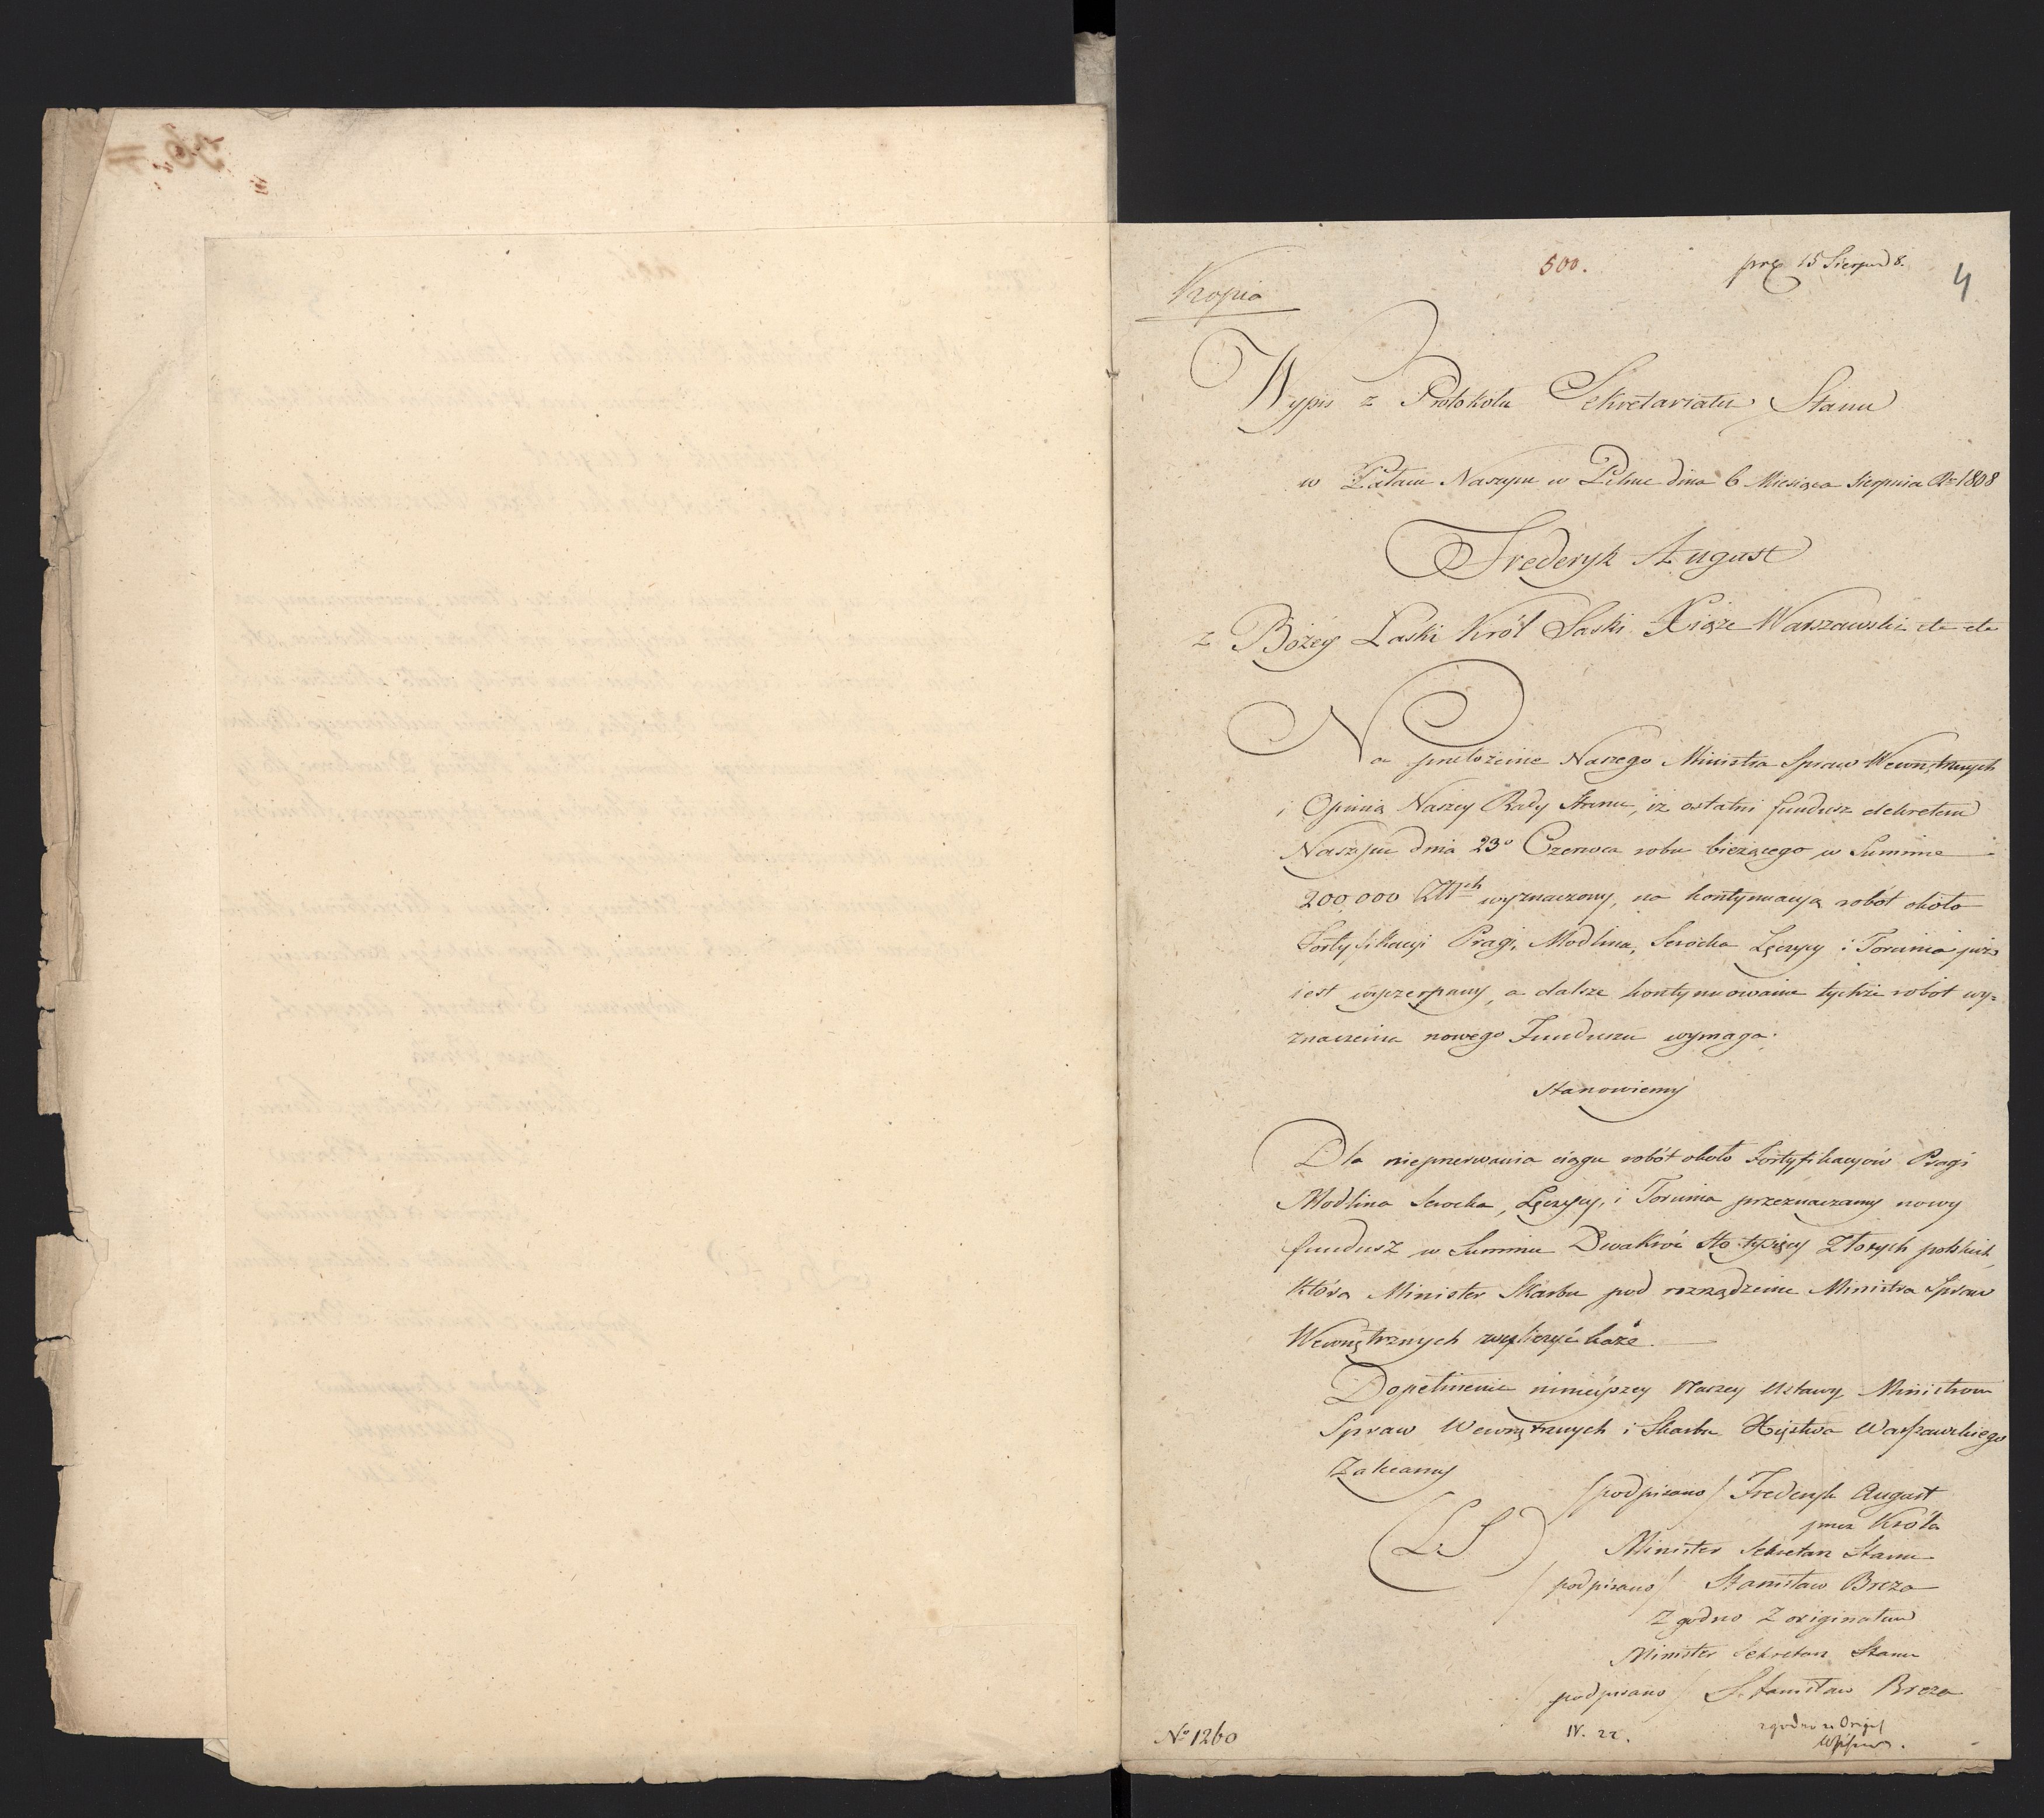 500.
prz 15 Sierpn 8.
4
Kopia
Wypis z Protokołu Sekretariatu Stanu
w Pałacu Naszym w Pilnic dnia 6 Miesiąca Sierpnia R 1808
Frederyk August
z Bożey Łaski Król Saski Xiąże Warszawski etc etc
Na przełożenie Naszego Ministra Spraw Wewnętrznych
i Opinią Naszey Rady Stanu, iż ostatni fundusz dekretem
Naszym dnia 23º Czerwca roku bieżącego w Summie
200,000 Złłpch wyznaczony, na kontynuacyą robót około
Fortyfikacyi Pragi, Modlina, Serocka Łęczycy i Torunia już
iest wyczerpany, a dalsze kontynuowanie tychże robót wy=
znaczenia nowego Funduszu wymaga.
Stanowiemy
Dla nieprzerwania ciągu robót około Fortyfikacyów Pragi
Modlina Serocka, Łęczycy, i Torunia przeznaczamy nowy
fundusz w Summie Dwakroć Sto tysięcy Złotych polskich,
którą Minister Skarbu pod rozrządzenie Ministra Spraw
Wewnętrznych wyliczyć każe.
Dopełnienie ninieyszey Naszey Ustawy Ministrom
Spraw Wewnętrznych i Skarbu Xięstwa Warszawskiego
Zalecamy
/podpisano/ Frederyk August
przez Króla
(LS)
Minister Sekretarz Stanu
/podpisano/ Stanisław Breza
Zgodno z originałem
Minister Sekretarz Stanu
/podpisano/ Stanisław Breza
Nº 1260
IV. 22.
zgodno z Orig